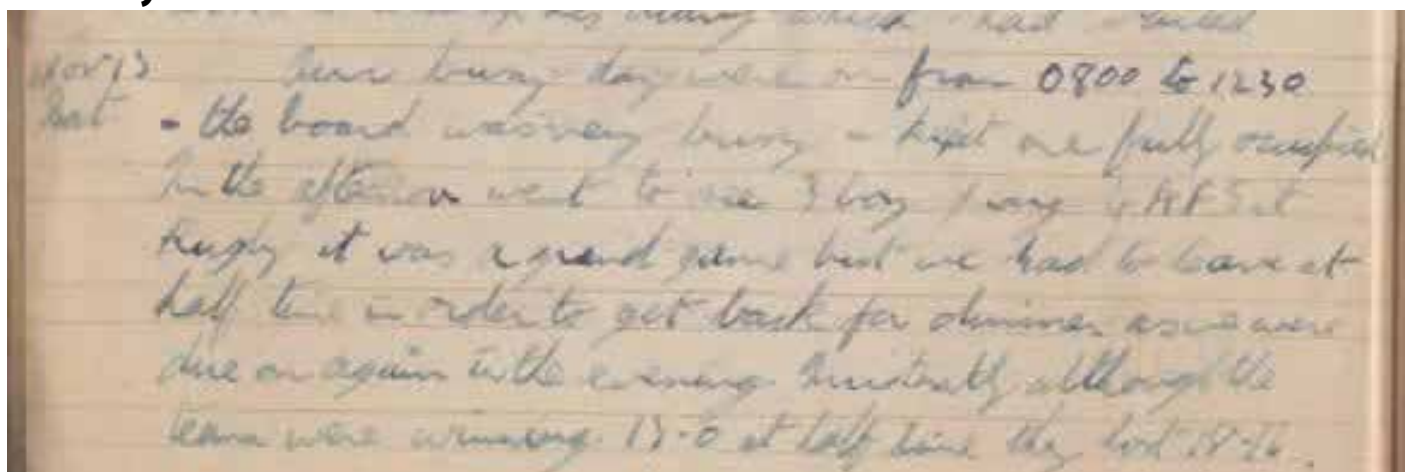 which had
Nov 13 busy day were on from 0800 to 1230
Sat - the board was very busy - kept me fully occupied
In the afternoon went to see boy at
Rugby it was a grand game but we had to leave at
half time in order to get back for dinner as we were
due on again in the evening although the
team were winning 13-0 at half time they lost